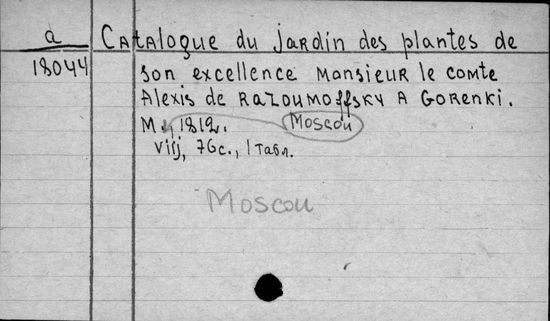 a Catalogue du jardin des plantes de
18044 son excellence Monsieur le comte
Alexis de Razoumoffsky a Gorenki.
M., 1812. Moscou
viij, 76c., 1 табл.
Moscou